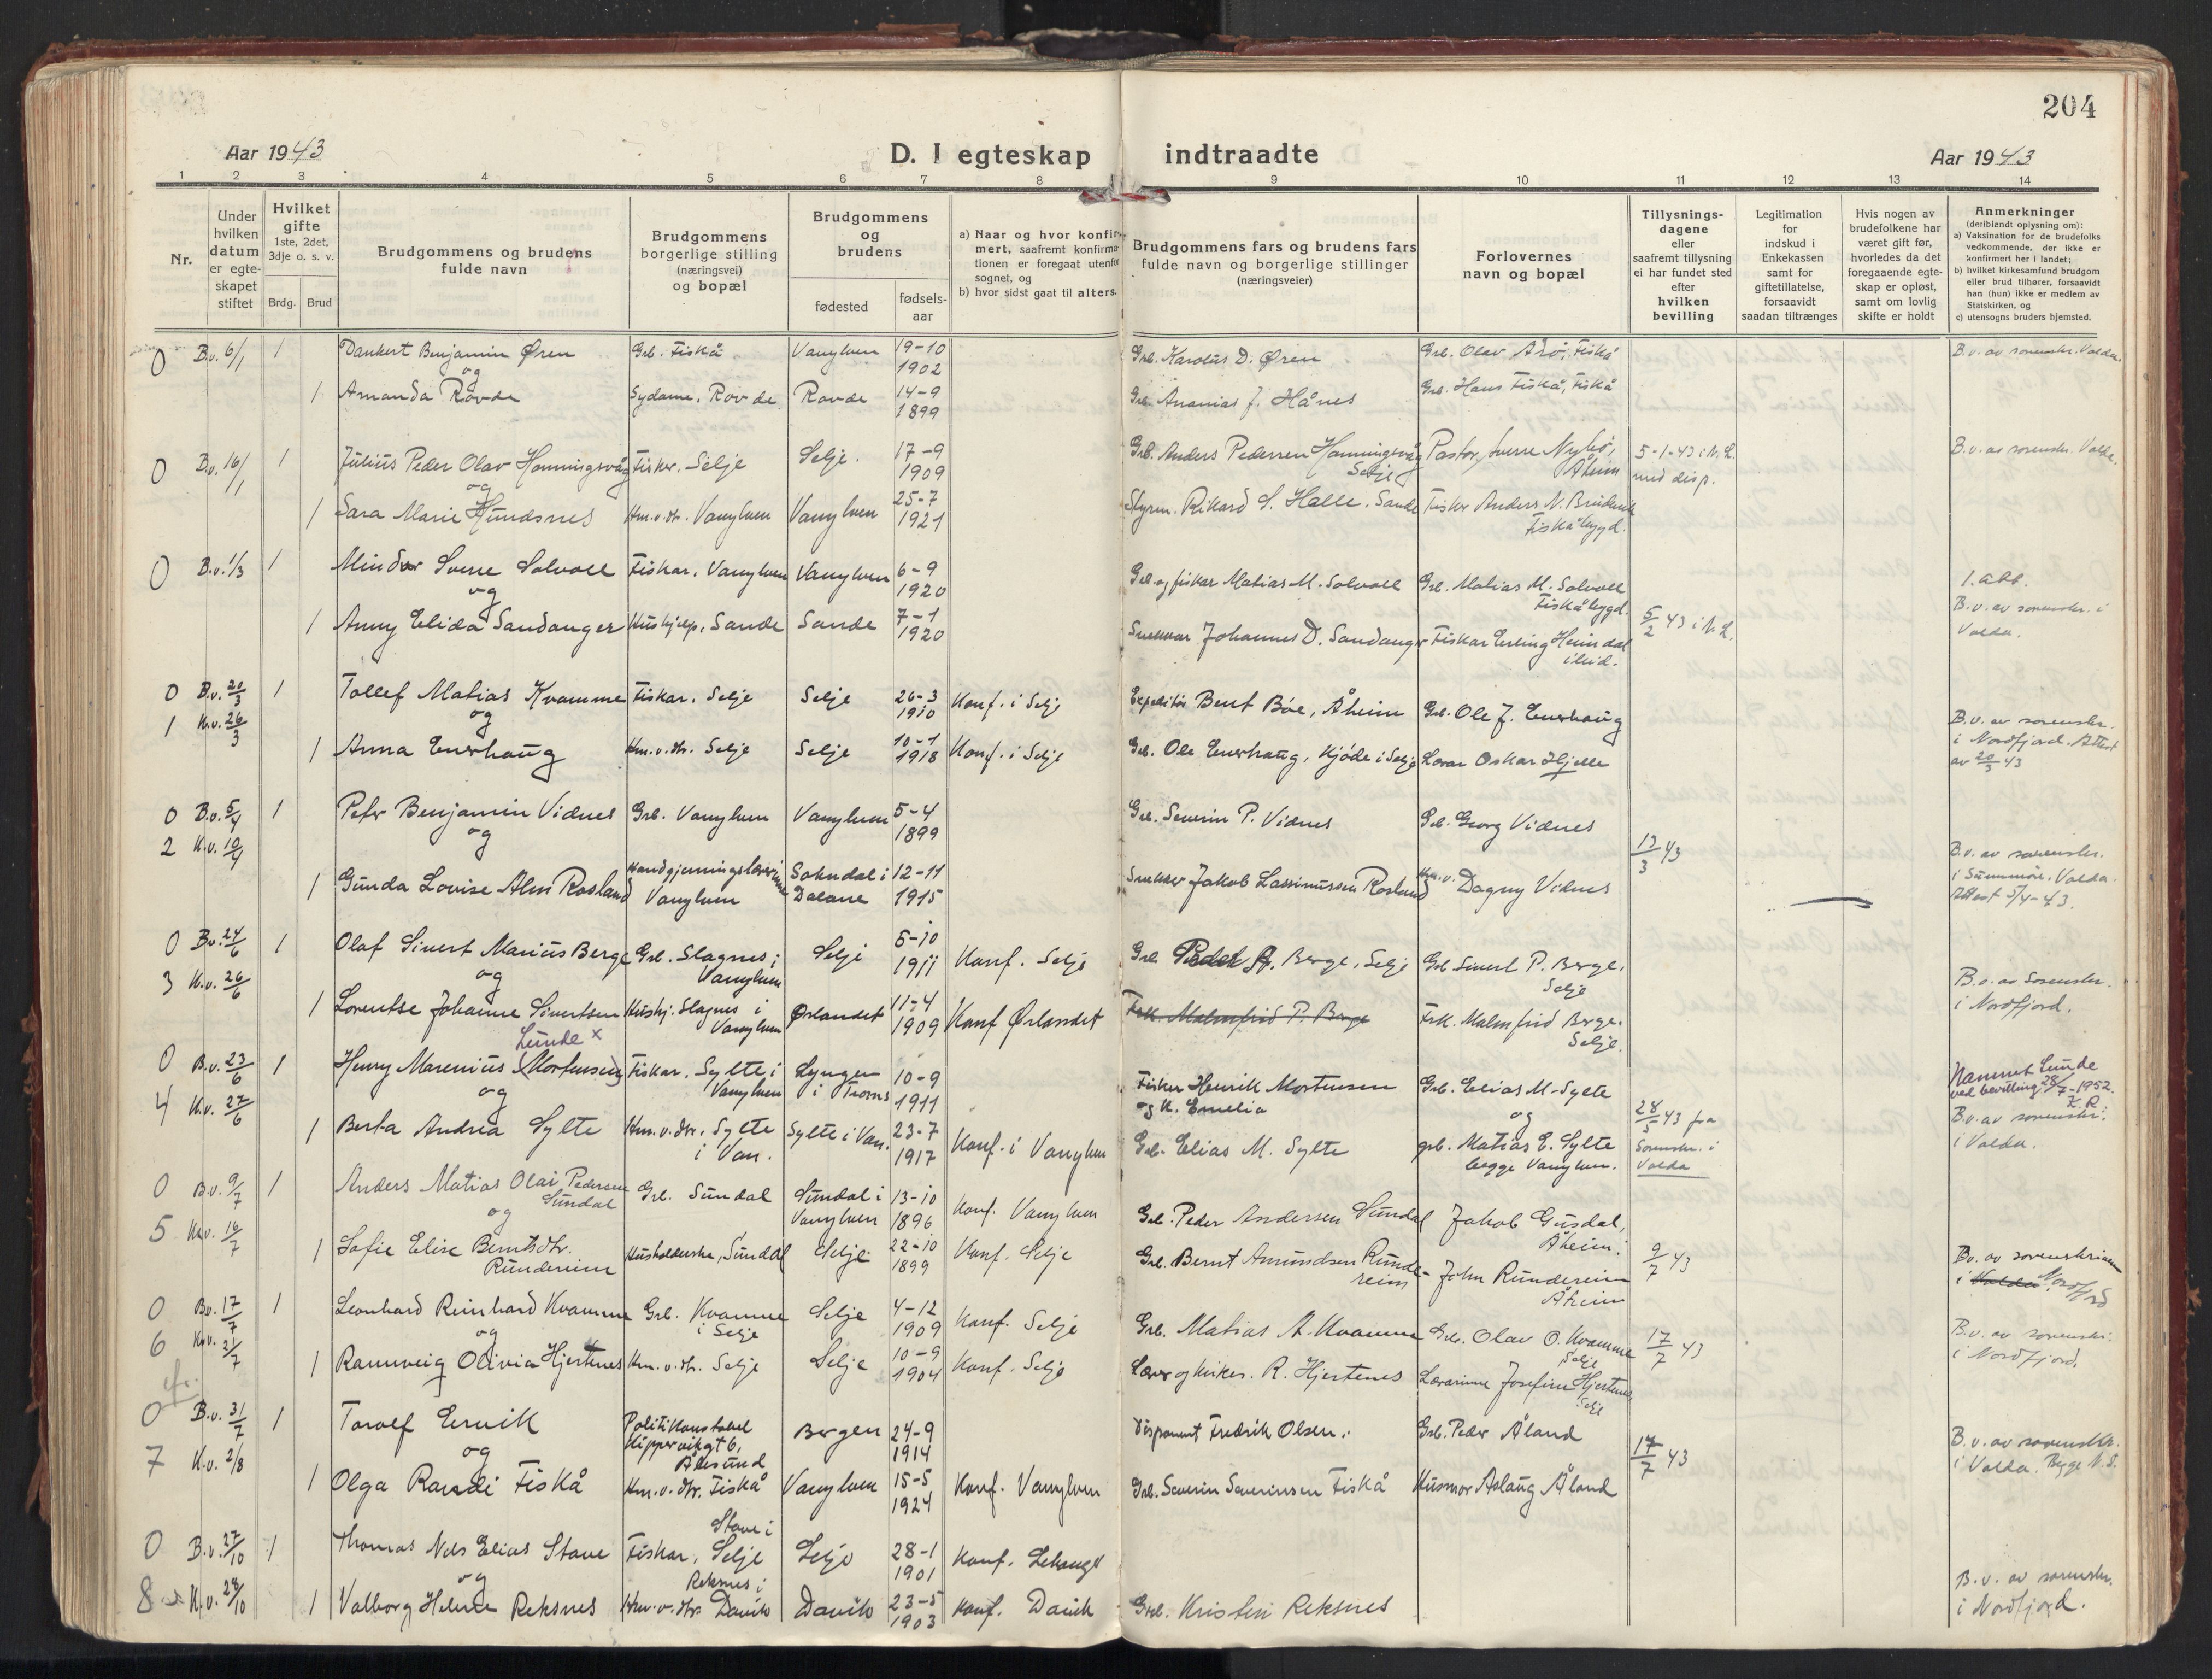 204
Aar 1943
D. I egteskap indtraadte
Aar 1943
1 2 3 4 5 6 7 8 9 10 11 12 13 14
Nr.
Under hvilken datum er egte- skapet stiftet
Hvilket gifte 1ste, 2det, 3dje o. s. v.
Brdg. Brud
Brudgommens og brudens fulde navn
Brudgommens borgerlige stilling (næringsvei) og bopæl
Brudgommens og brudens
fødested
fødsels- aar
a) Naar og hvor konfir- mert, saafremt konfirma- tionen er foregaat utenfor sognet, og
b) hvor sidst gaat til alters.
Brudgommens fars og brudens fars fulde navn og borgerlige stillinger (næringsveier)
Forlovernes navn og bopæl
Tillysnings- dagene eller saafremt tillysning ei har fundet sted efter hvilken bevilling
Legitimation for indskud i Enkekassen samt for giftetillatelse, forsaavidt saadan tiltrænges
Hvis nogen av brudefolkene har været gift før, hvorledes da det foregaaende egte- skap er opløst, samt om lovlig skifte er holdt
Anmerkninger (deriblandt oplysning om):
a) Vaksination for de brudefolks vedkommende, der ikke er konfirmert her i landet;
b) hvilket kirkesamfund brudgom eller brud tilhører, forsaavidt han (hun) ikke er medlem av Statskirken, og
c) utensogns bruders hjemsted.
0 B.v. 6/1 1 Dankert Benjamin Øren Grb. Fiskå Vanylven 19-10 1902 Grb. Karolus D. Øren Grb. Olav Arø, Fiskå B.v. av sorenskr. Valda.
og
1 Amanda Rovde Sydame, Rovde Rovde 14-9 1899 Grb. Ananias J. Hånes Grb. Hans Fiskå, Fiskå
0 B.v. 16/1 1 Julius Peder Olav Honningsvåg Fisker, Selje Selje. 17-9 1909 Grb. Anders Pedersen Honningsvåg Selje Pastor Sverre Nybø, Åheim 5-1-43 i N.L. med disp. B.v. av sorenskr. Valda.
og
1 Sara Marie Hundsnes Hm.v.dtr. Vanylven Vanylven 25-7 1921 Styrm. Rikard S. Halle, Sande Fisker Anders N. Fiskåbygd.
0 B.v. 1/3 1 Mindor Sverre Solvoll Fiskar, Vanylven Vanylven 6-9 1920 Grb. og fiskar Matias M. Solvoll Grb. Matias M. Solvoll Fiskåbygd. 5/2 43 i N.L. B.v. av sorenskr. i Valda.
og
1 Anny Elida Sandanger Hushjelp, Sande Sande 7-1 1920 Snekkar Johannes D. Sandanger Fiskar Erling Heimdal ibid.
0 B.v. 20/3 1 Tollef Matias Kvamme Fiskar, Selje Selje 26-3 1910 Konf. i Selje Expeditør Bent Bøe, Åheim Grb. Ole J. Enerhaug
1 K.v. 26/3 og B.v. av sorenskr. i Nordfjord. Attest av 20/3 43
1 Anna Enerhaug Hm.v.dtr. Selje Selje 10-1 1918 Konf. i Selje Grb. Ole Enerhaug, Kjøde i Selje Lærar Oskar Hjelle
0 B.v. 5/4 1 Peter Benjamin Vidnes Grb. Vanylven Vanylven 5-4 1899 Grb. Severin P. Vidnes Grb. Georg Vidnes 13/3 43
2 K.v. 10/4 og B.v. av sorenskr. i Sunnmøre, Valda. Attest 5/4-43.
1 Gunda Lovise Alm Rosland Handgjerningslærerinne Vanylven Sokndal i Dalane 12-11 1915 Snekker Jakob Lassinussen Rosland Hm.v. Dagny Vidnes
0 B.v. 24/6 1 Olaf Sivert Marius Berge Grb. Slagnes i Vanylven Selje 5-10 1911 Konf. Selje Grb. Peder A. Berge, Selje Grb Sivert P. Berge, Selje
3 K.v. 26/6 og B.v. av Sorenskr. i Nordfjord.
1 Lorentse Johanne Sivertsen Hushj. Slagnes i Vanylven Ørlandet 11-4 1909 Konf Ørlandet Frk. Malmfrid P. Berge Frk. Malmfrid Berge. Selje.
Lunde x
0 B.v. 23/6 1 Henry Marenius (Mortensen) Fiskar, Sylte i Vanylven Lyngen i Troms 10-9 1911 Fisker Henrik Mortensen og K. Emelia Grb. Elias M. Sylte Namnet Lunde ved bevilling 28/7-1952. K.R.
4 K.v. 27/6 og og 28/5 43 fra Sorenskr. i Valda B.v. av sorenskr. i Valda.
1 Berta Andrea Sylte Hm.v.dtr., Sylte i Van. Sylte i Van. 23-7 1917 Konf. i Vanylven Grb. Elias M. Sylte grb. Matias E. Sylte begge Vanylven.
0 B.v. 9/7 1 Anders Matias Olai Pedersen Sundal Grb. Sundal Sundal i Vanylven 13-10 1896 Konf. Vanylven Grb. Peder Andersen Sundal Jakob Gusdal, Åheim.
5 K.v. 16/7 og 9/7 43
1 Sofie Elise Berntsdtr. Rundereim Husholderske, Sundal Selje 22-10 1899 Konf. Selje Grb. Bernt Amundsen Rundereim John Rundereim Åheim B.v. av sorenskriveren i Valda Nordfjord
0 B.v. 17/7 1 Leonhard Reinhard Kvamme Grb. Kvamme i Selje Selje 4-12 1909 Konf. Selje Grb. Matias A. Kvamme Grb. Olav O. Kvamme Selje 17/7 43 B.v. av sorenskr. i Nordfjord.
6 K.v. 21/7 og
1 Rannveig Olivia Hjertenes Hm.v.dtr. Selje Selje 10-9 1904 Konf. Selje Lærer og kirkes. R. Hjertenes Lærarinne Josefine Hjertenes, Selje
cfr.
0 B.v. 31/7 1 Torolf Ervik Politikonstabel Klippervikgt 6, Ålesund Bergen 24-9 1914 Disponent Fredrik Olsen. Grb. Peder Åland
7 K.v. 2/8 og 17/7 43 B.v. av sorenskr. i Valda. Begge N.S.
1 Olga Randi Fiskå Hm.v.dtr. Fiskå Vanylven 15-5 1924 Konf. Vanylven Grb. Severin Severinsen Fiskå Husmor Aslaug Åland
0 B.v. 27/10 1 Thomas Nels Elias Stave Fiskar, Stave i Selje Selje 28-1 1901 Konf. Lekanger
og
8 K.v. 28/10 1 Valborg Helene Reksnes Hm.v.dtr. Reksnes i Davik Davik 23-5 1903 Konf. Davik Grb. Kristen Reksnes B.v. av sorenskr. i Nordfjord.